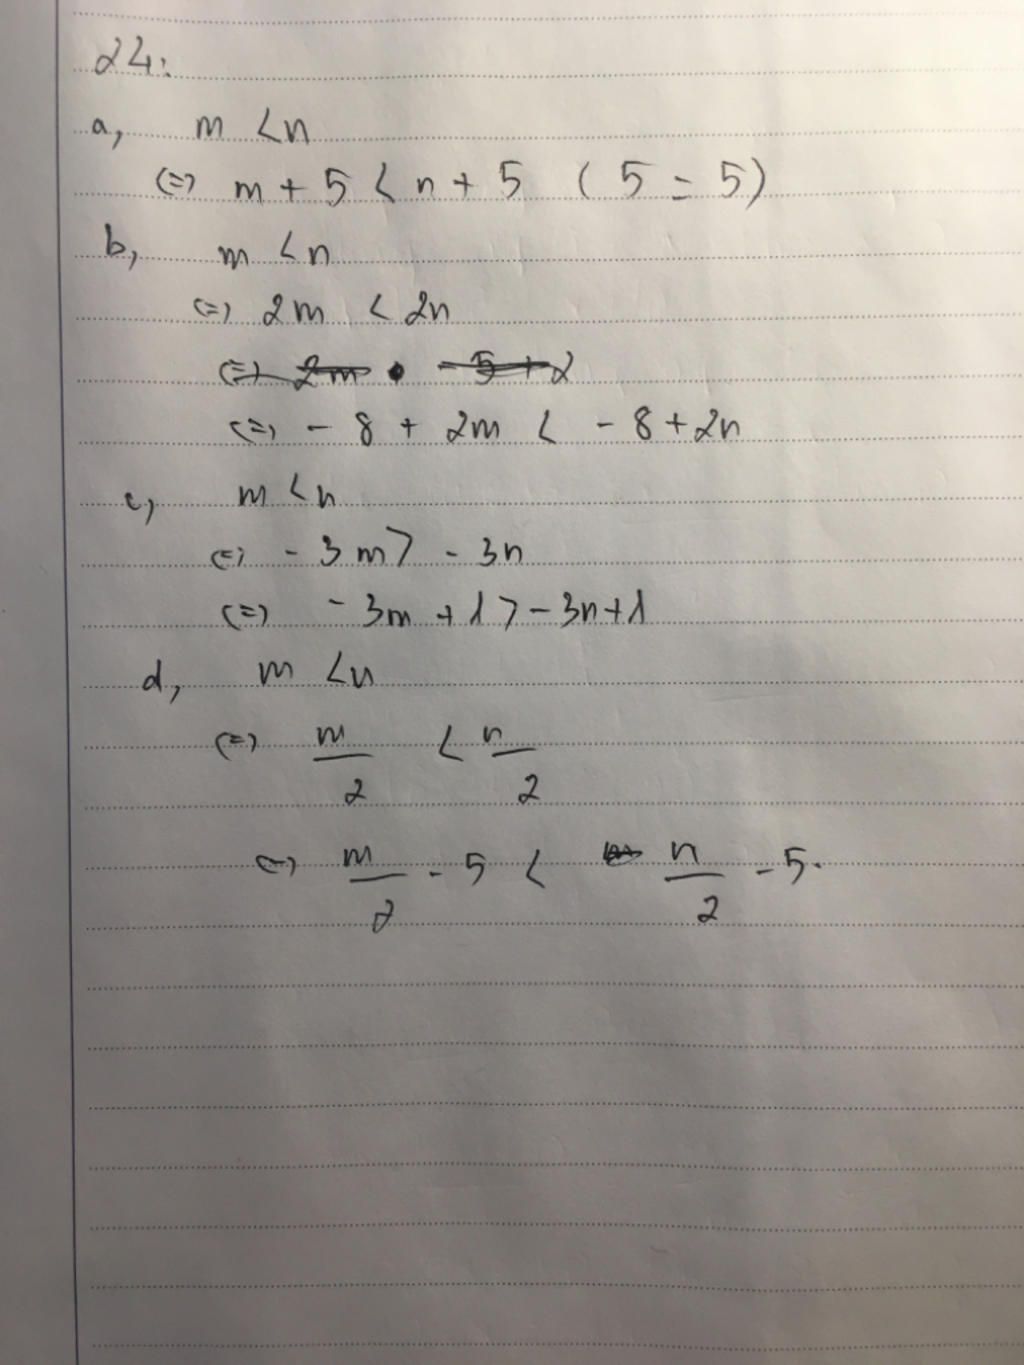 24:
a, m < n
(=) m + 5 < n + 5 ( 5 = 5)
b, m < n
(=) 2m < 2n
(=) 2m • - 5 + 2
(=) - 8 + 2m < - 8 + 2n
c, m < n
(=) - 3m > - 3n
(=) - 3m + 1 > - 3n + 1
d, m < n
(=) m/2 < n/2
(=) m/2 - 5 < n/2 - 5.